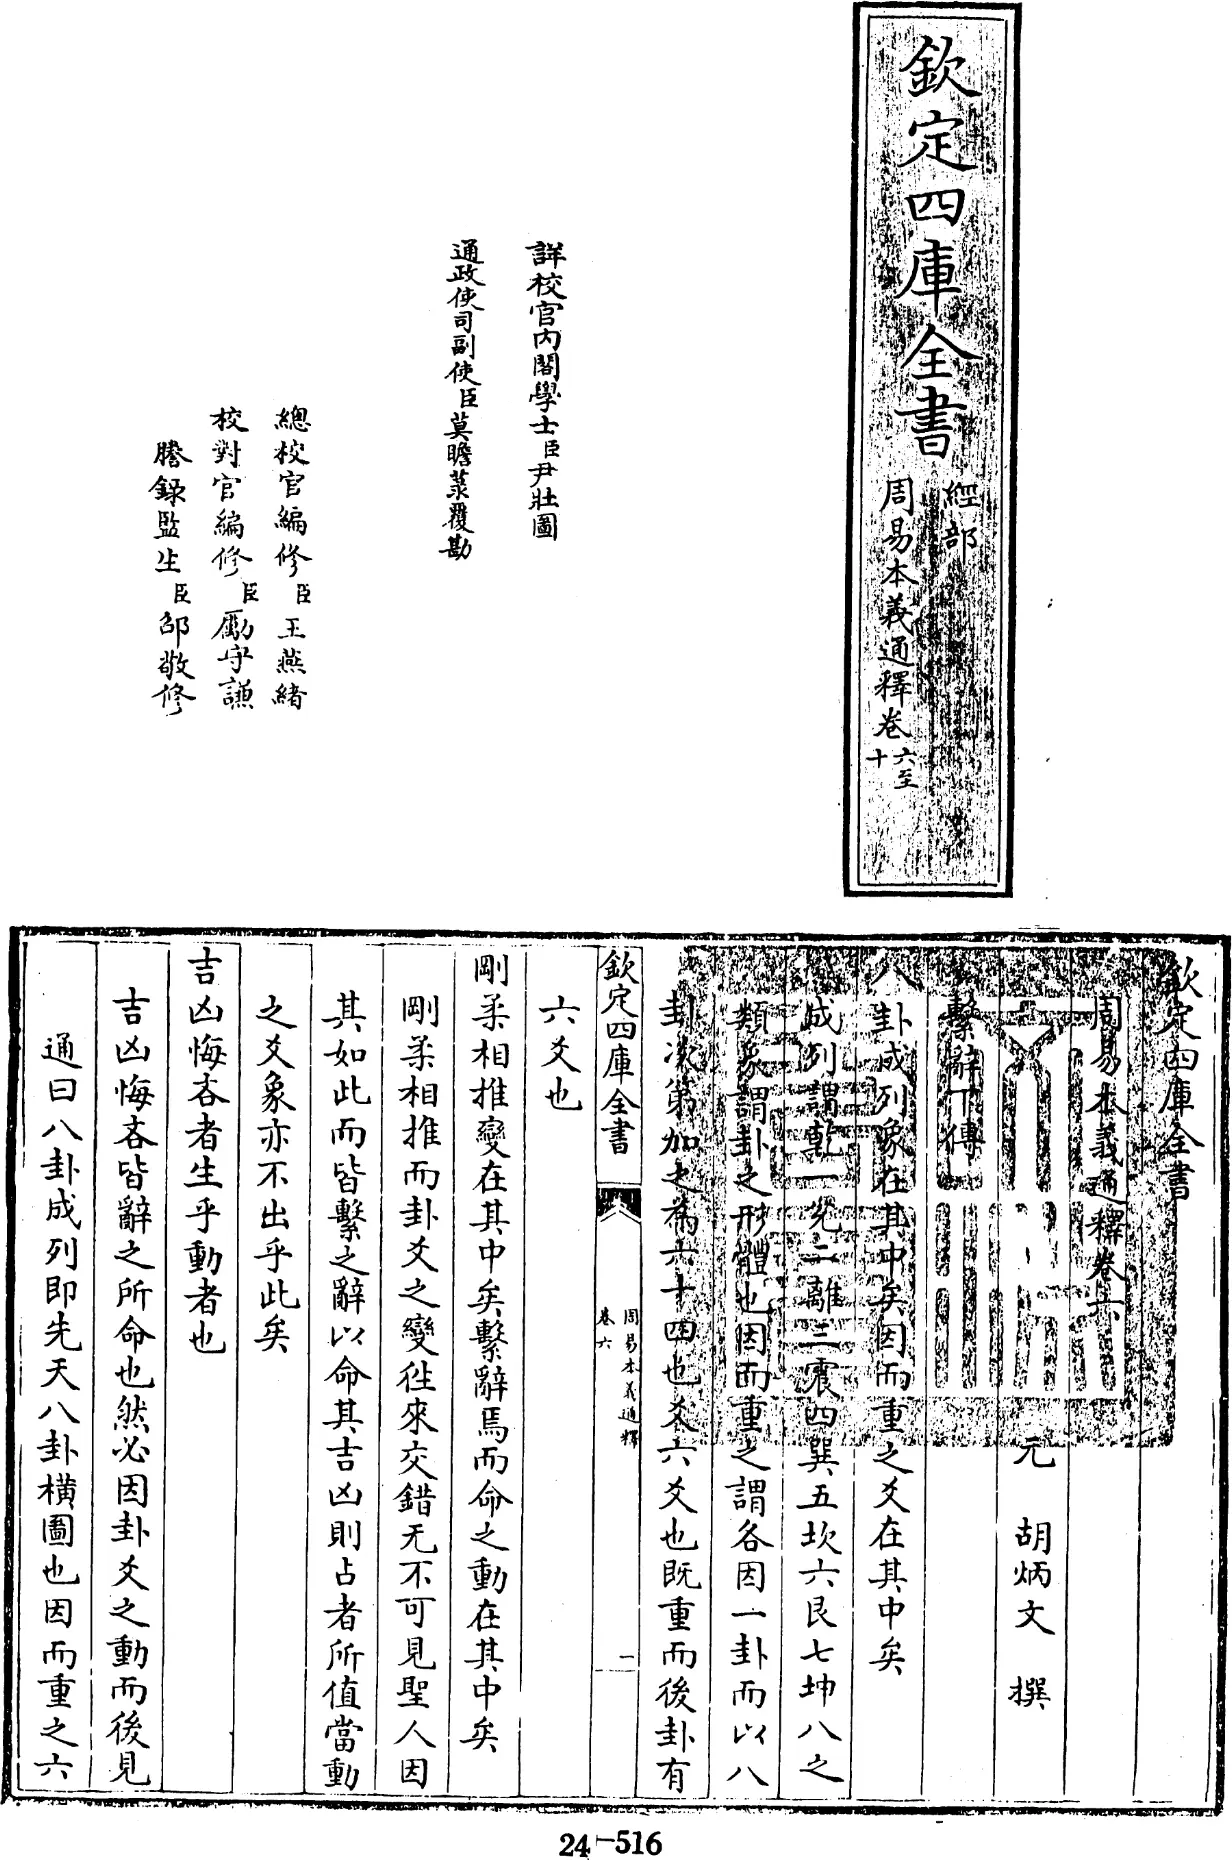 欽定四庫全書
經部
周易本義通釋卷六至十
詳校官內閣學士臣尹壯圖
通政使司副使臣莫瞻菉覆勘
總校官編修臣王燕緒
校對官編修臣勵守謙
謄錄監生臣邵敬修
欽定四庫全書
周易本義通釋卷六
元 胡炳文 撰
繫辭下傳
八卦成列象在其中矣因而重之爻在其中矣
成列謂乾一兌二離三震四巽五坎六艮七坤八之
類象謂卦之形體也因而重之謂各因一卦而以八
卦次第加之為六十四也爻六爻也既重而後卦有
欽定四庫全書
周易本義通釋
卷六
一
六爻也
剛柔相推變在其中矣繫辭焉而命之動在其中矣
剛柔相推而卦爻之變往來交錯无不可見聖人因
其如此而皆繫之辭以命其吉凶則占者所值當動
之爻象亦不出乎此矣
吉凶悔吝者生乎動者也
吉凶悔吝皆辭之所命也然必因卦爻之動而後見
通曰八卦成列即先天八卦橫圖也因而重之六
24-516